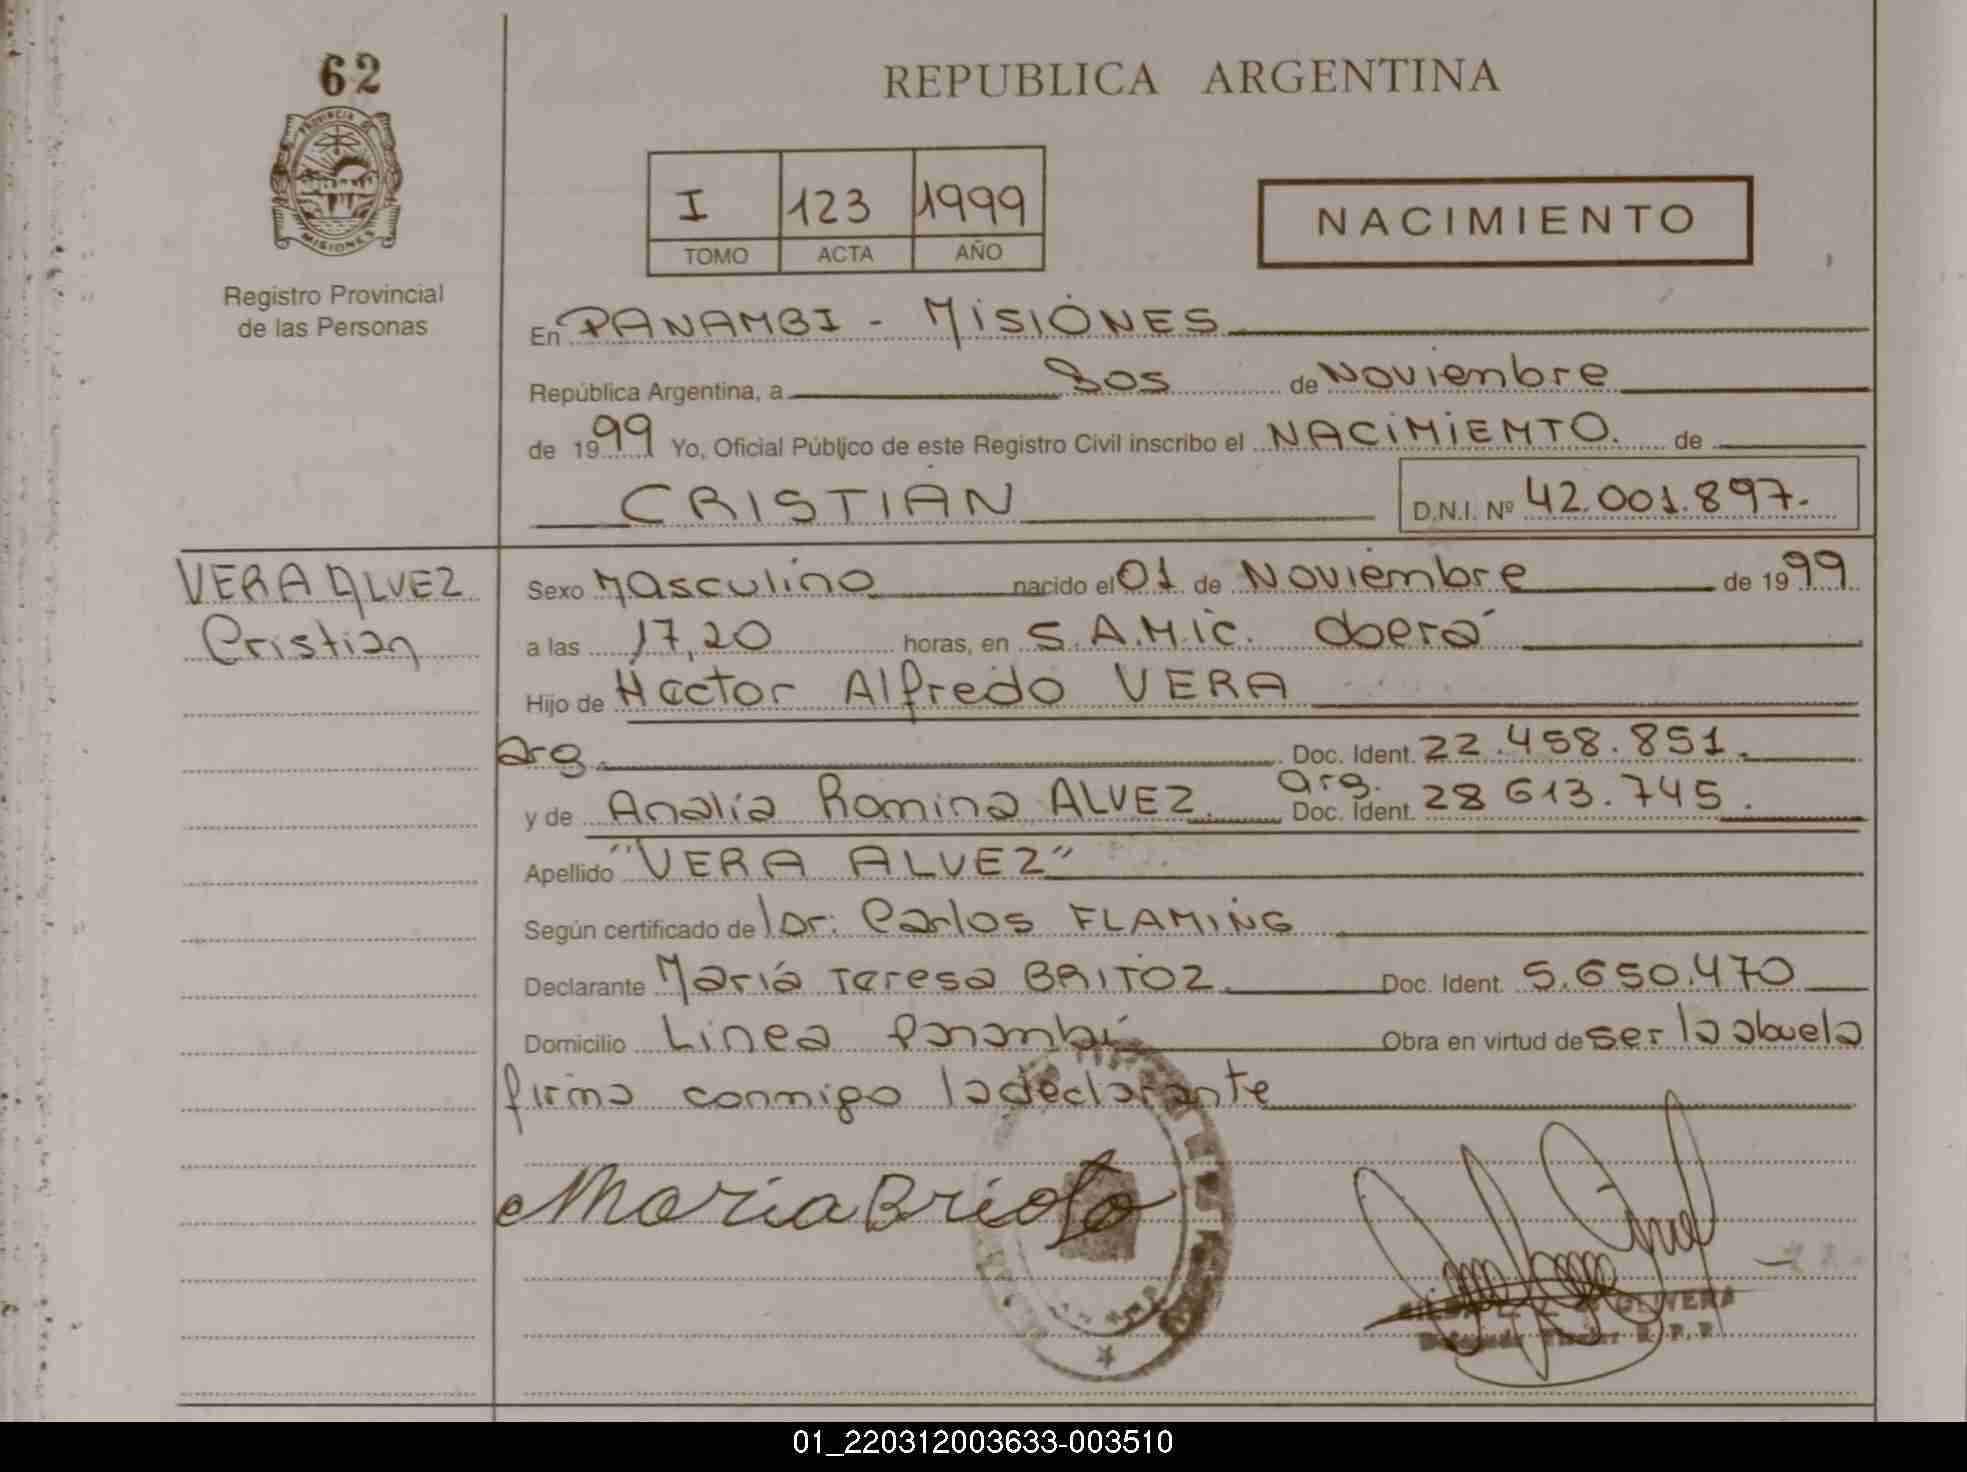 62
PROVINCIA DE
MISIONES
Registro Provincial
de las Personas
REPUBLICA ARGENTINA
I 123 1999
TOMO ACTA AÑO
NACIMIENTO
En PANAMBI - MISIONES
República Argentina, a Dos de Noviembre
de 1999 Yo, Oficial Público de este Registro Civil inscribo el NACIMIENTO. de
CRISTIAN D.N.I. Nº 42.001.897.-
VERA ALVEZ
Cristian
Sexo Masculino nacido el 01 de Noviembre de 1999
a las 17,20 horas, en S.A.M.ic. Oberá
Hijo de Hector Alfredo VERA
arg. Doc. Ident. 22.458.851.
arg.
y de Analía Romina ALVEZ. Doc. Ident. 28 613.745.
Apellido "VERA ALVEZ"
Según certificado de Dr. Carlos FLAMING
Declarante María Teresa BRITOZ. Doc. Ident. 5.650.470
Domicilio Linea Panambí Obra en virtud de ser la abuela
firma conmigo la declarante
Maria Brioto
OLIVERA
R. P. P.
01_220312003633-003510